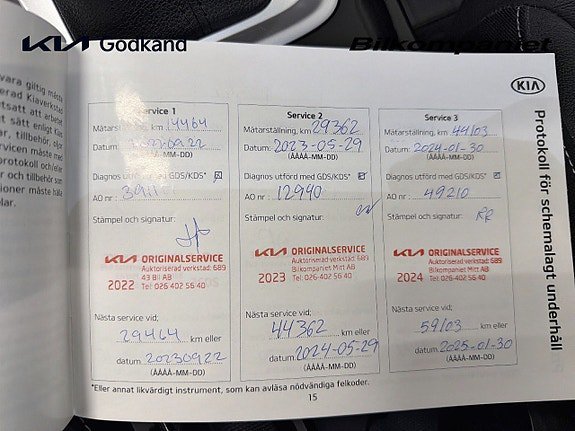 KIA Godkänd
Bilkompaniet
vara giltig måste
erad Kiaverkstad
tsatt att arbetet
sätt enligt Kias
är, tillbehör, oljor
rvicen måste med
protokoll och/eller
r och tillbehör som
ioner måste hållas
elar.
KIA
Protokoll för schemalagt underhåll
Service 1
Mätarställning, km 14464
Datum: 2022-09-22
(ÅÅÅÅ-MM-DD)
Diagnos utförd med GDS/KDS*
AO nr:
Stämpel och signatur:
KIA ORIGINALSERVICE
Auktoriserad verkstad: 689
43 Bil AB
2022 Tel: 026 402 56 40
Nästa service vid;
29464 km eller
datum. 20230922
(ÅÅÅÅ-MM-DD)
Service 2
Mätarställning, km 29362
Datum: 2023-05-29
(ÅÅÅÅ-MM-DD)
Diagnos utförd med GDS/KDS*
AO nr: 12990
Stämpel och signatur:
KIA ORIGINALSERVICE
Auktoriserad verkstad: 689
2023 Bilkompaniet Mitt AB
Tel: 026-402 56 40
Nästa service vid;
44362 km eller
datum. 2024-05-29
(ÅÅÅÅ-MM-DD)
Service 3
Mätarställning, km 44103
Datum: 2024-01-30
(ÅÅÅÅ-MM-DD)
Diagnos utförd med GDS/KDS*
AO nr: 49210
Stämpel och signatur:
RR
KIA ORIGINALSERVICE
Auktoriserad verkstad: 689
Bilkompaniet Mitt AB
2024 Tel: 026-402 56 40
Nästa service vid;
59103 km eller
datum. 2025-01-30
(ÅÅÅÅ-MM-DD)
*Eller annat likvärdigt instrument, som kan avläsa nödvändiga felkoder.
15